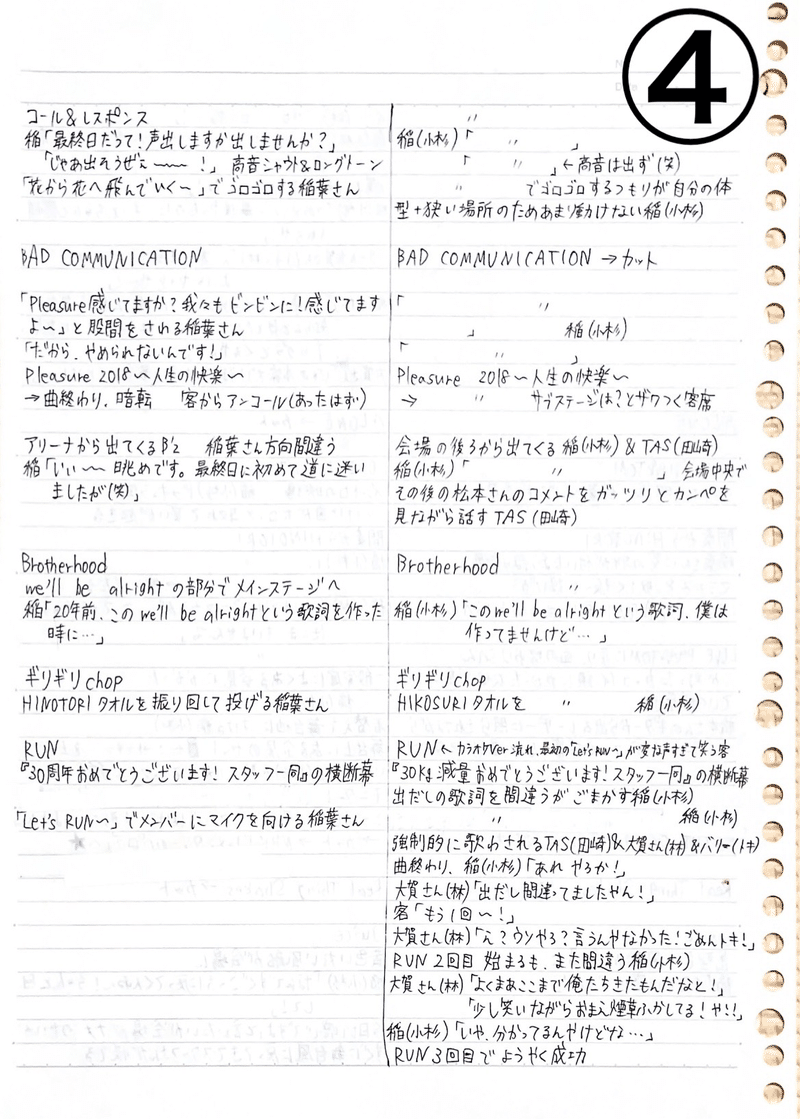 ④
コール&レスポンス
稲「最終日だって!声出しますか出しませんか?」
「じゃあ出そうぜぇ〜〜〜!」 高音シャウト&ロングトーン
「花から花へ飛んでいく〜」でゴロゴロする稲葉さん
BAD COMMUNICATION
「Pleasure感じてますか?我々もビンビンに!感じてます
よ〜」と股間をされる稲葉さん
「だから、やめられないんです!」
Pleasure 2018〜人生の快楽〜
→曲終わり、暗転 客からアンコール(あったはず)
アリーナから出てくるB'z 稲葉さん方向間違う
稲「いい〜眺めです。最終日に初めて道に迷い
ましたが(笑)」
Brotherhood
we'll be alright の部分でメインステージへ
稲「20年前、このwe'll be alrightという歌詞を作った
時に…」
ギリギリchop
HINOTORIタオルを振り回して投げる稲葉さん
RUN
『30周年おめでとうございます! スタッフ一同』の横断幕
「Let's RUN〜」でメンバーにマイクを向ける稲葉さん
〃
稲(小杉)「 〃 」
「 〃 」←高音は出ず(笑)
〃 でゴロゴロするつもりが自分の体
型+狭い場所のためあまり動けない稲(小杉)
BAD COMMUNICATION →カット
「 〃
」 稲(小杉)
「 〃 」
Pleasure 2018〜人生の快楽〜
→ 〃 サブステージは?とザワつく客席
会場の後ろから出てくる稲(小杉)&TAS(田崎)
稲(小杉)「 〃 」 会場中央で
その後の松本さんのコメントをガッツリとカンペを
見ながら話すTAS(田崎)
Brotherhood
〃
稲(小杉)「このwe'll be alrightという歌詞、僕は
作ってませんけど…」
ギリギリchop
HIKOSURIタオルを 〃 稲(小杉)
RUN ←カラオケver流れ、最初の「Let's RUN〜」が変な声すぎて笑う客
『30kg減量おめでとうございます!スタッフ一同』の横断幕
出だしの歌詞を間違うがごまかす稲(小杉)
〃 稲(小杉)
強制的に歌わされるTAS(田崎)&大賀さん(林)&バリー(トキ)
曲終わり、稲(小杉)「あれ やろか!」
大賀さん(林)「出だし間違ってましたやん!」
客「もう1回〜!」
大賀さん(林)「え?ウソやろ?言うんやなかった!ごめんトキ!」
RUN 2回目 始まるも、また間違う稲(小杉)
大賀さん(林)「よくまあここまで俺たちきたもんだなと!」
「少し笑いながらおまえ煙草ふかしてる!や!!」
稲(小杉)「いや、分かってるんやけどな…」
RUN 3回目でようやく成功